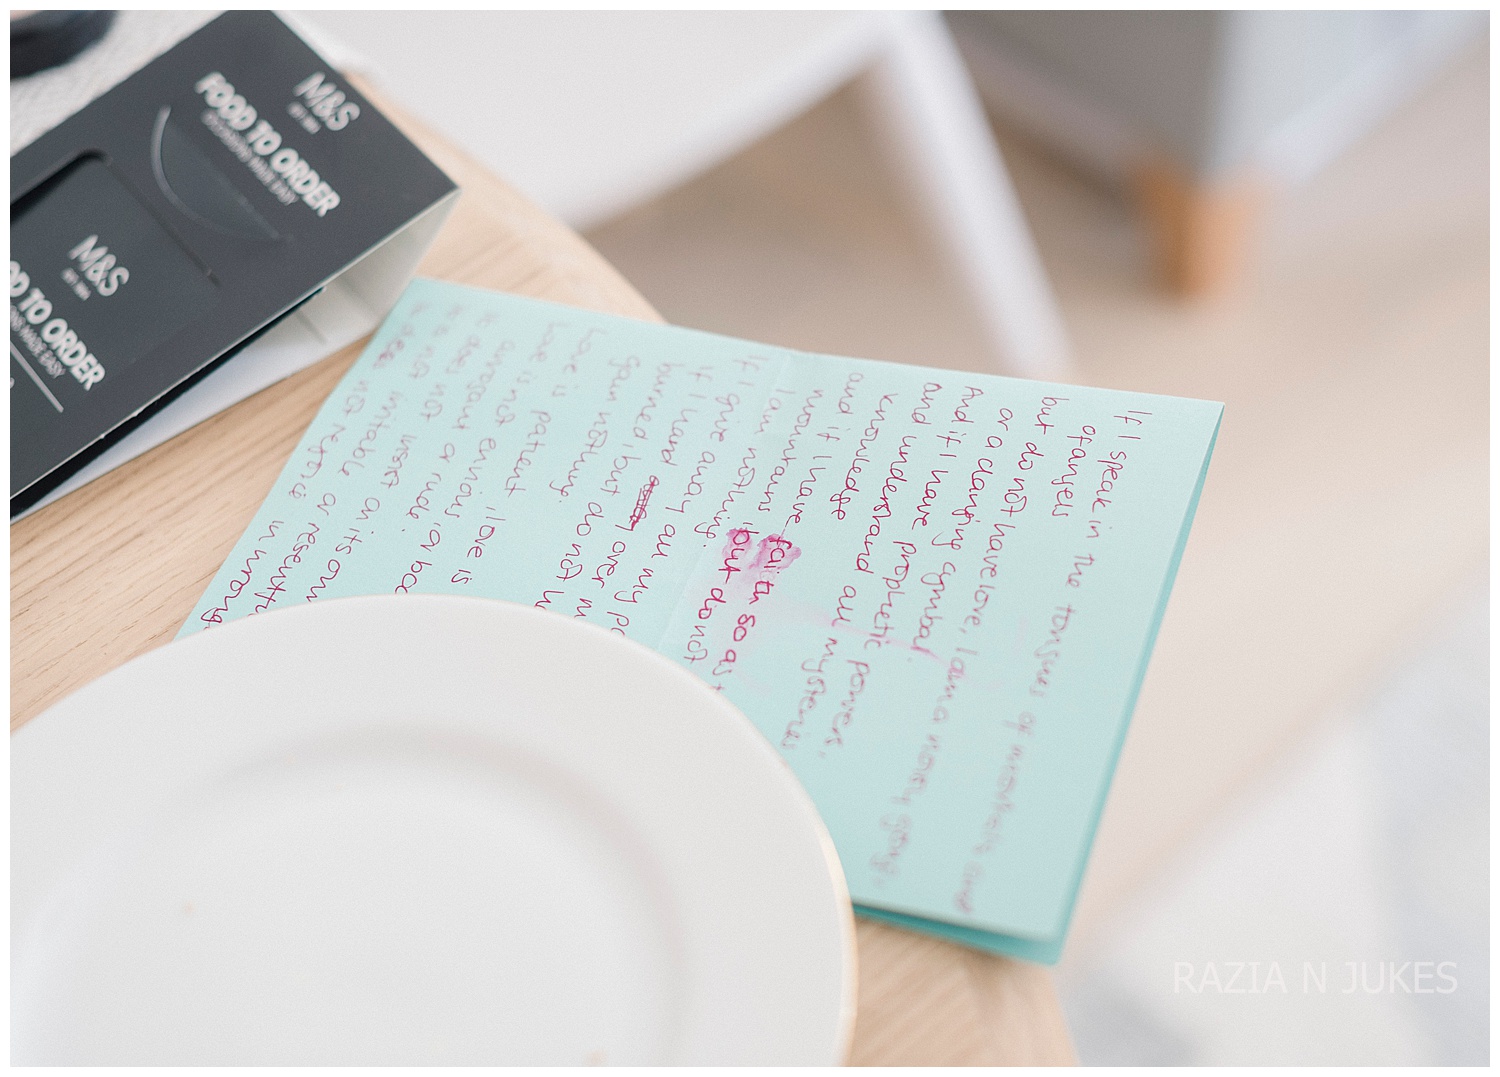 M&S
EST. 1884
FOOD TO ORDER
OCCASIONS MADE EASY
M&S
EST. 1884
OD TO ORDER
MADE EASY
If I speak in the tongues of mortals and
of angels
but do not have love, I am a noisy gong,
or a clanging cymbal
And if I have prophetic powers,
and understand all mysteries
knowledge
and if I have faith so as t
mountains
I am nothing. but do not
If I give away all my po
If I hand over m
burned, but do not l
gain nothing.
Love is patient, love is
Love is not envious, or boa
arrogant or rude.
It does not insist on its own
It is not irritable or resentfu
It does not rejoice in wrong
RAZIA N JUKES